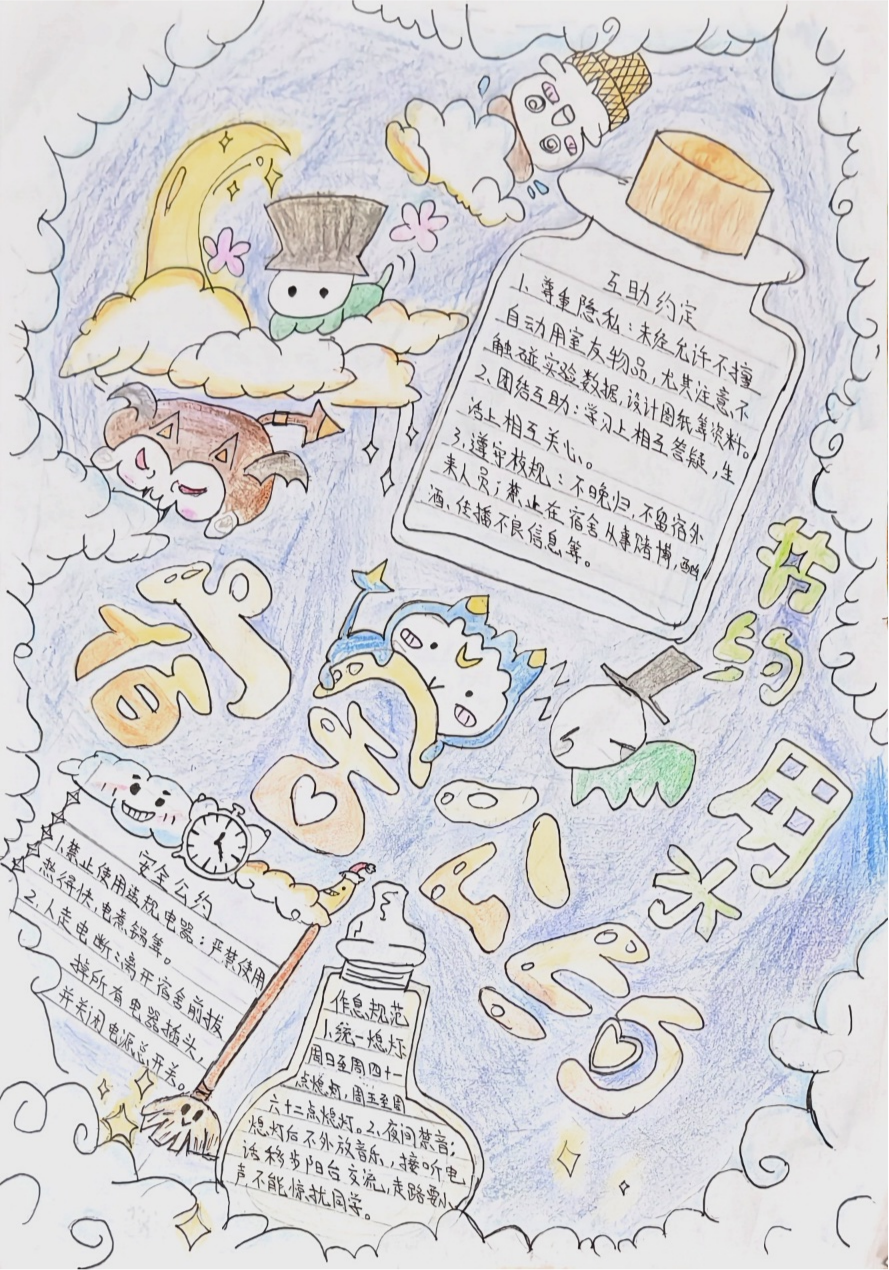 互助约定
1、尊重隐私：未经允许不擅
自动用室友物品，尤其注意，不
触碰实验数据，设计图纸等资料。
2、团结互助：学习上相互答疑，生
活上相互关心。
3、遵守校规：不晚归，不留宿外
来人员；禁止在宿舍从事赌博，酗
酒、传播不良信息等。
节
约
用
水
宿
舍
公
约
Z
Z
安全公约
1.禁止使用违规电器：严禁使用
热得快，电煮锅等。
2.人走电断：离开宿舍前拔
掉所有电器插头，
并关闭电源总开关。
作息规范
1.统一熄灯
周日至周四十一
点熄灯，周五至周
六十二点熄灯。2.夜间禁音；
熄灯后不外放音乐，接听电
话移步阳台交流，走路要小
声不能惊扰同学。